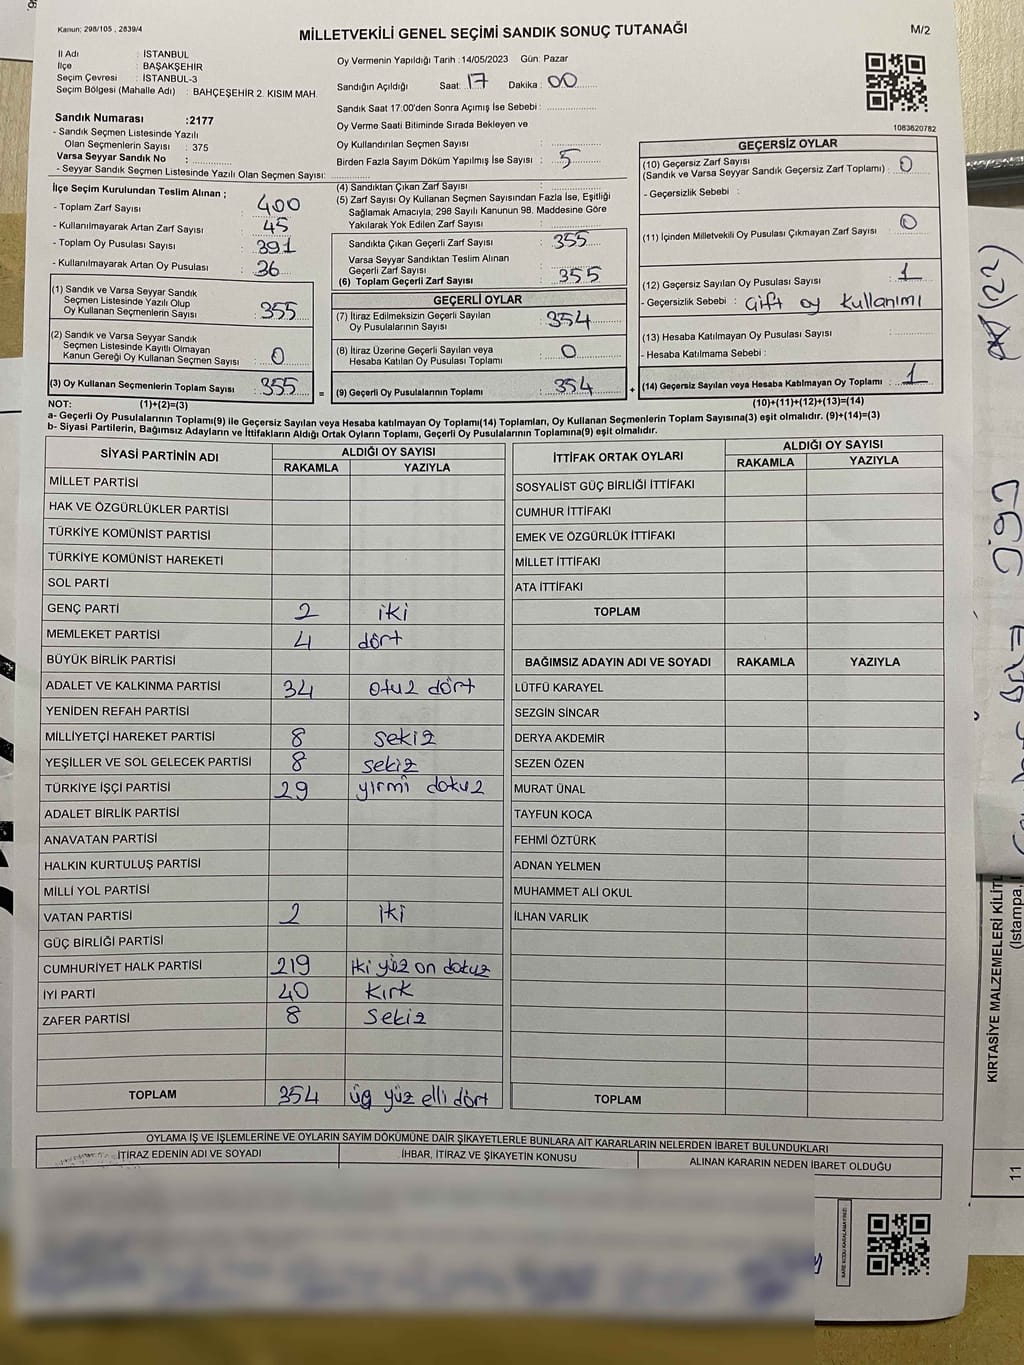 Kanun: 298/105 , 2839/4
MİLLETVEKİLİ GENEL SEÇİMİ SANDIK SONUÇ TUTANAĞI
M/2
İl Adı : İSTANBUL
İlçe : BAŞAKŞEHİR
Seçim Çevresi : İSTANBUL-3
Seçim Bölgesi (Mahalle Adı) : BAHÇEŞEHİR 2. KISIM MAH.
Sandık Numarası :2177
- Sandık Seçmen Listesinde Yazılı
Olan Seçmenlerin Sayısı : 375
Varsa Seyyar Sandık No :
- Seyyar Sandık Seçmen Listesinde Yazılı Olan Seçmen Sayısı:
Oy Vermenin Yapıldığı Tarih :14/05/2023 Gün: Pazar
Sandığın Açıldığı Saat: 17 Dakika : 00
Sandık Saat 17:00'den Sonra Açımış İse Sebebi :
Oy Verme Saati Bitiminde Sırada Bekleyen ve
Oy Kullandırılan Seçmen Sayısı :
Birden Fazla Sayım Döküm Yapılmış İse Sayısı : 5
1083620782
İlçe Seçim Kurulundan Teslim Alınan ;
- Toplam Zarf Sayısı : 400
- Kullanılmayarak Artan Zarf Sayısı : 45
- Toplam Oy Pusulası Sayısı : 391
- Kullanılmayarak Artan Oy Pusulası : 36
(1) Sandık ve Varsa Seyyar Sandık
Seçmen Listesinde Yazılı Olup
Oy Kullanan Seçmenlerin Sayısı : 355
(2) Sandık ve Varsa Seyyar Sandık
Seçmen Listesinde Kayıtlı Olmayan
Kanun Gereği Oy Kullanan Seçmen Sayısı : 0
(3) Oy Kullanan Seçmenlerin Toplam Sayısı : 355 =
(4) Sandıktan Çıkan Zarf Sayısı :
(5) Zarf Sayısı Oy Kullanan Seçmen Sayısından Fazla İse, Eşitliği
Sağlamak Amacıyla; 298 Sayılı Kanunun 98. Maddesine Göre
Yakılarak Yok Edilen Zarf Sayısı :
Sandıkta Çıkan Geçerli Zarf Sayısı : 355
Varsa Seyyar Sandıktan Teslim Alınan
Geçerli Zarf Sayısı :
(6) Toplam Geçerli Zarf Sayısı : 355
GEÇERLİ OYLAR
(7) İtiraz Edilmeksizin Geçerli Sayılan
Oy Pusulalarının Sayısı : 354
(8) İtiraz Üzerine Geçerli Sayılan veya
Hesaba Katılan Oy Pusulası Toplamı : 0
(9) Geçerli Oy Pusulalarının Toplamı : 354 +
GEÇERSİZ OYLAR
(10) Geçersiz Zarf Sayısı
(Sandık ve Varsa Seyyar Sandık Geçersiz Zarf Toplamı) : 0
- Geçersizlik Sebebi :
(11) İçinden Milletvekili Oy Pusulası Çıkmayan Zarf Sayısı : 0
(12) Geçersiz Sayılan Oy Pusulası Sayısı : 1
- Geçersizlik Sebebi : Çift oy kullanımı
(13) Hesaba Katılmayan Oy Pusulası Sayısı :
- Hesaba Katılmama Sebebi :
(14) Geçersiz Sayılan veya Hesaba Katılmayan Oy Toplamı : 1
NOT: (1)+(2)=(3)
(10)+(11)+(12)+(13)=(14)
a- Geçerli Oy Pusulalarının Toplamı(9) ile Geçersiz Sayılan veya Hesaba katılmayan Oy Toplamı(14) Toplamları, Oy Kullanan Seçmenlerin Toplam Sayısına(3) eşit olmalıdır. (9)+(14)=(3)
b- Siyasi Partilerin, Bağımsız Adayların ve İttifakların Aldığı Ortak Oyların Toplamı, Geçerli Oy Pusulalarının Toplamına(9) eşit olmalıdır.
SİYASİ PARTİNİN ADI ALDIĞI OY SAYISI
RAKAMLA YAZIYLA
MİLLET PARTİSİ
HAK VE ÖZGÜRLÜKLER PARTİSİ
TÜRKİYE KOMÜNİST PARTİSİ
TÜRKİYE KOMÜNİST HAREKETİ
SOL PARTİ
GENÇ PARTİ 2 iki
MEMLEKET PARTİSİ 4 dört
BÜYÜK BİRLİK PARTİSİ
ADALET VE KALKINMA PARTİSİ 34 otuz dört
YENİDEN REFAH PARTİSİ
MİLLİYETÇİ HAREKET PARTİSİ 8 sekiz
YEŞİLLER VE SOL GELECEK PARTİSİ 8 sekiz
TÜRKİYE İŞÇİ PARTİSİ 29 yirmi dokuz
ADALET BİRLİK PARTİSİ
ANAVATAN PARTİSİ
HALKIN KURTULUŞ PARTİSİ
MİLLİ YOL PARTİSİ
VATAN PARTİSİ 2 iki
GÜÇ BİRLİĞİ PARTİSİ
CUMHURİYET HALK PARTİSİ 219 iki yüz on dokuz
İYİ PARTİ 40 kırk
ZAFER PARTİSİ 8 Sekiz
TOPLAM 354 üç yüz elli dört
İTTİFAK ORTAK OYLARI ALDIĞI OY SAYISI
RAKAMLA YAZIYLA
SOSYALİST GÜÇ BİRLİĞİ İTTİFAKI
CUMHUR İTTİFAKI
EMEK VE ÖZGÜRLÜK İTTİFAKI
MİLLET İTTİFAKI
ATA İTTİFAKI
TOPLAM
BAĞIMSIZ ADAYIN ADI VE SOYADI RAKAMLA YAZIYLA
LÜTFÜ KARAYEL
SEZGİN SİNCAR
DERYA AKDEMİR
SEZEN ÖZEN
MURAT ÜNAL
TAYFUN KOCA
FEHMİ ÖZTÜRK
ADNAN YELMEN
MUHAMMET ALİ OKUL
İLHAN VARLIK
TOPLAM
OYLAMA İŞ VE İŞLEMLERİNE VE OYLARIN SAYIM DÖKÜMÜNE DAİR ŞİKAYETLERLE BUNLARA AİT KARARLARIN NELERDEN İBARET BULUNDUKLARI
İTİRAZ EDENİN ADI VE SOYADI İHBAR, İTİRAZ VE ŞİKAYETİN KONUSU ALINAN KARARIN NEDEN İBARET OLDUĞU
(22)
KIRTASİYE MALZEMELERİ
(Istampa,
11